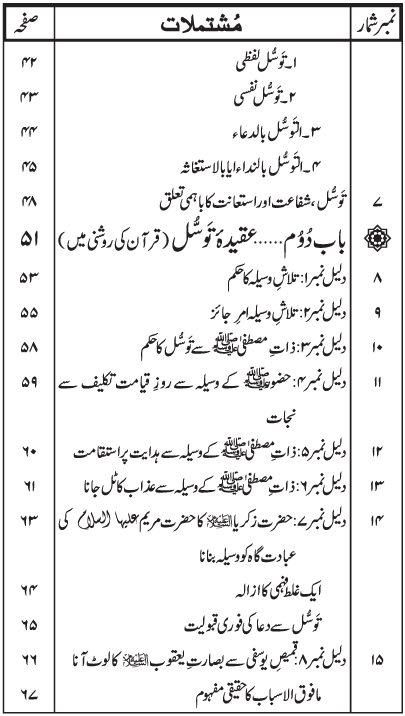 نمبر شمار مُشتملات صفحہ
۱۔ توسُّل لفظی ۴۲
۲۔ توسُّل نفسی ۴۳
۳۔ التوسُّل بالدعاء ۴۴
۴۔ التوسُّل بالنداء ایا بالاستغاثہ ۴۵
۷ توسُّل، شفاعت اور استعانت کا باہمی تعلق ۴۸
باب دُوُم ...... عقیدۂ توسُّل (قرآن کی روشنی میں) ۵۱
۸ دلیل نمبر۱: تلاشِ وسیلہ کا حکم ۵۳
۹ دلیل نمبر۲: تلاشِ وسیلہ امرِ جائز ۵۵
۱۰ دلیل نمبر۳: ذاتِ مصطفیٰ ﷺ سے توسُّل کا حکم ۵۸
۱۱ دلیل نمبر۴: حضور ﷺ کے وسیلہ سے روزِ قیامت تکلیف سے ۵۹
نجات
۱۲ دلیل نمبر۵: ذاتِ مصطفیٰ ﷺ کے وسیلہ سے ہدایت پر استقامت ۶۰
۱۳ دلیل نمبر۶: ذاتِ مصطفیٰ ﷺ کے وسیلہ سے عذاب کا ٹل جانا ۶۱
۱۴ دلیل نمبر۷: حضرت زکریا علیہ السلام کا حضرت مریم علیہا السلام کی ۶۳
عبادت گاہ کو وسیلہ بنانا
ایک غلط فہمی کا ازالہ ۶۴
توسُّل سے دعا کی فوری قبولیت ۶۵
۱۵ دلیل نمبر۸: قمیصِ یوسفی سے بصارتِ یعقوب علیہ السلام کا لوٹ آنا ۶۶
مافوق الاسباب کا حقیقی مفہوم ۶۷